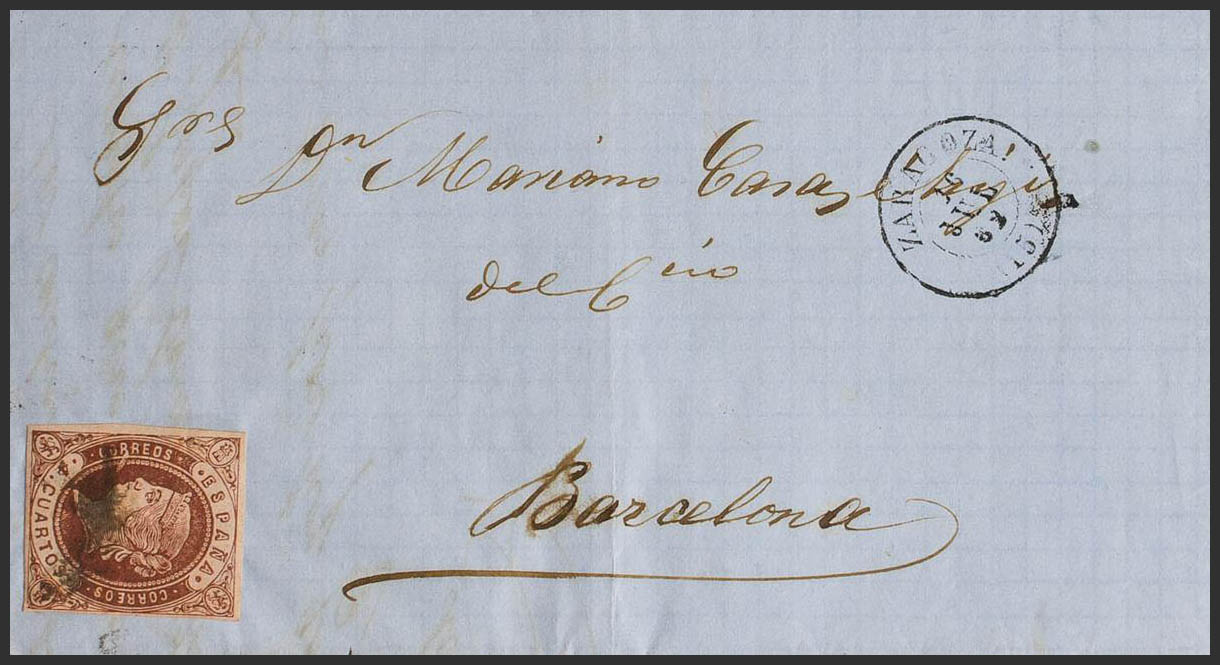 Sres
Dn Mariano Casas e hijo
del Cio
Barcelona
ZARAGOZA
JUL
62
CORREOS
ESPAÑA
4 CUARTOS
CORREOS